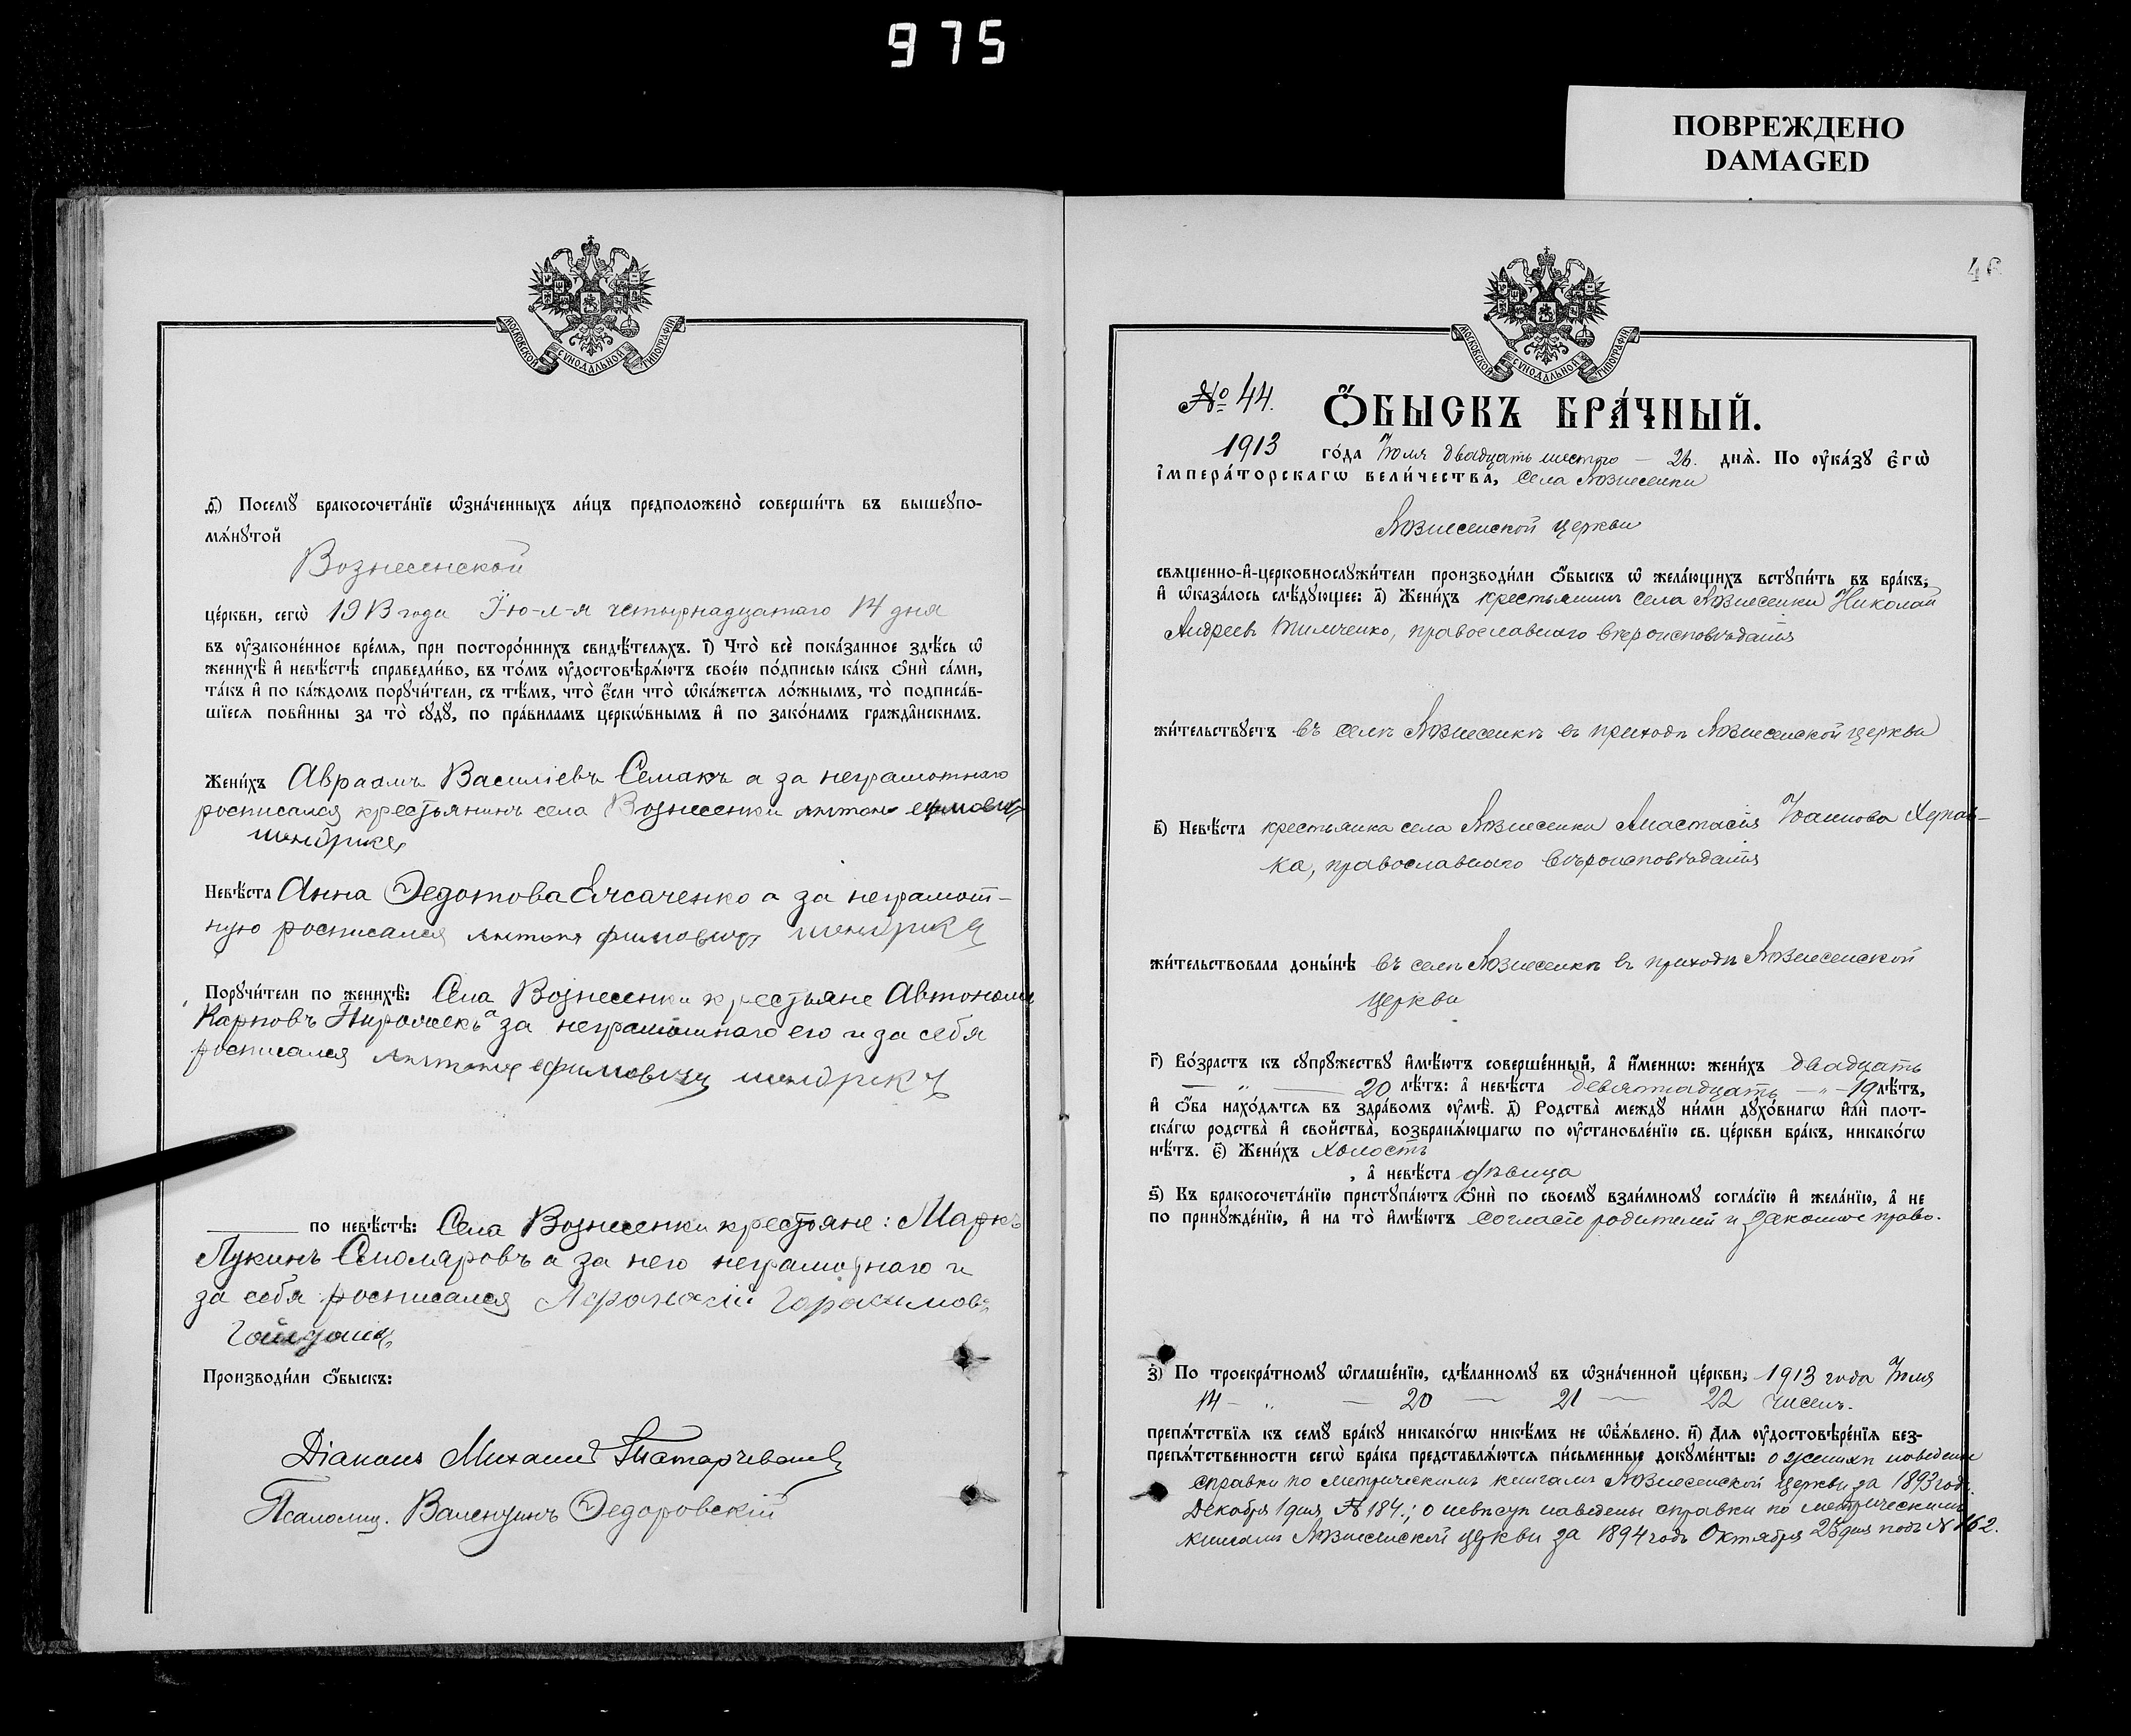 975
ПОВРЕЖДЕНО
DAMAGED
МОСКОВСКОЙ СѴНОДАЛЬНОЙ ТИПОГРАФІИ
д҃) Посемꙋ̀ бракосочета́нїе ѡ҆зна́ченныхъ ли́цъ предположено̀ соверши́ть въ вышеꙋпо-
мѧ́нꙋтой
Вознесенской
це́ркви, сегѡ̀ 1913 года Ію-л-я четырнадцатаго 14 дня
въ ѹ҆зако́ненное вре́мѧ, при посторо́ннихъ свидѣ́телѧхъ. і҃) Что̀ всѐ пока́занное здѣ́сь ѡ҆
женихѣ̀ и҆ невѣ́стѣ справедли́во, въ то́мъ ѹ҆достовѣрѧ́ютъ свое́ю по́дписью ка́къ ѻ҆нѝ са́ми,
та́къ и҆ по ка́ждомъ порꙋчи́тели, съ тѣ́мъ, что̀ є҆́сли что̀ ѡ҆ка́жетсѧ ло́жнымъ, то̀ подписа́в-
шїесѧ пови́нны за то̀ сꙋдꙋ̀, по пра́виламъ церкѡ́внымъ и҆ по зако́намъ гражда́нскимъ.
Жени́хъ Авраамъ Василіевъ Семакъ а за неграмотнаго
росписался крестьянинъ села Вознесенки Антонъ
шендрикъ
Невѣ́ста Анна Федотова а за неграмот-
ную росписался Антонъ шендрикъ
Порꙋчи́тели по женихѣ̀: Села Вознесенки крестьяне Автономъ
Карповъ а за неграмотнаго его и за себя
росписался Антонъ шендрикъ
по невѣ́стѣ: Села Вознесенки крестьяне: Маркъ
Лукинъ Столяровъ а за него неграмотнаго и
за себя росписался Горасимовъ
Производи́ли ѻ҆́быскъ:
Діаконъ Михаилъ
Псаломщ. Валентинъ Федоровскій
46
МОСКОВСКОЙ СѴНОДАЛЬНОЙ ТИПОГРАФІИ
№ 44.
Ѻ҆́БЫСКЪ БРА́ЧНЫЙ.
1913 го́да Іюля двадцать шестого — 26. днѧ̀. По ѹ҆ка́зꙋ є҆гѡ̀
і҆мпера́торскагѡ вели́чества, села Вознесенки
Вознесенской церкви
свѧще́нно-и҆-церковнослꙋжи́тели производи́ли ѻ҆́быскъ ѡ҆ жела́ющихъ встꙋпи́ть въ бра́къ,
и҆ ѡ҆каза́лось слѣ́дꙋющее: а҃) Жени́хъ крестьянинъ села Вознесенки Николай
Андреевъ Тимченко, православнаго вероисповѣданія
жи́тельствꙋетъ въ селѣ Вознесенкѣ въ приходѣ Вознесенской церкви
в҃) Невѣ́ста крестьянка села Вознесенки Анастасія Іоаннова
ка, православнаго вѣроисповѣданія
жи́тельствовала доны́нѣ въ селѣ Вознесенкѣ въ приходѣ Вознесенской
церкви
г҃) Во́зрастъ къ сꙋпрꙋжествꙋ̀ и҆мѣ́ютъ соверше́нный, а҆ и҆́менно: жени́хъ двадцать
— „ — 20 лѣ́тъ: а҆ невѣ́ста девятнадцать — „ — 19 лѣ́тъ,
и҆ ѻ҆́ба нахо́дѧтсѧ въ здра́вомъ ѹ҆мѣ̀. д҃) Родства̀ междꙋ̀ ни́ми дꙋхо́внагѡ и҆лѝ плот-
ска́гѡ родства̀ и҆ сво́йства̀, возбранѧ́ющагѡ по ѹ҆становле́нїю св. це́ркви бра́къ, никако́гѡ
нѣ́тъ. є҃) Жени́хъ холостъ
, а҆ невѣ́ста дѣвица
ѕ҃) Къ бракосочета́нїю пристꙋпа́ютъ ѻ҆нѝ по своемꙋ̀ взаи́мномꙋ согла́сїю и҆ жела́нїю, а҆ не
по принꙋжде́нїю, и҆ на то̀ и҆мѣ́ютъ согласіе родителей и законное право.
з҃) По троекра́тномꙋ ѡ҆глаше́нїю, сдѣ́ланномꙋ въ ѡ҆зна́ченной це́ркви, 1913 года Іюля
14 — „ — 20 — 21 — 22 чиселъ.
препѧ́тствїѧ къ семꙋ̀ бра́кꙋ никако́гѡ никѣ́мъ не ѡ҆б̾ѧ́влено. и҃) Длѧ ѹ҆достовѣре́нїѧ без-
препѧ́тственности сегѡ̀ бра́ка представлѧ́ютсѧ пи́сьменные докꙋме́нты: о женихѣ наведены
справки по метрическимъ книгамъ Вознесенской церкви за 1893 годъ.
Декабря 1 дня № 184.; о невѣстѣ наведены справки по метрическимъ
книгамъ Вознесенской церкви за 1894 годъ Октября 23 дня подъ № 162.